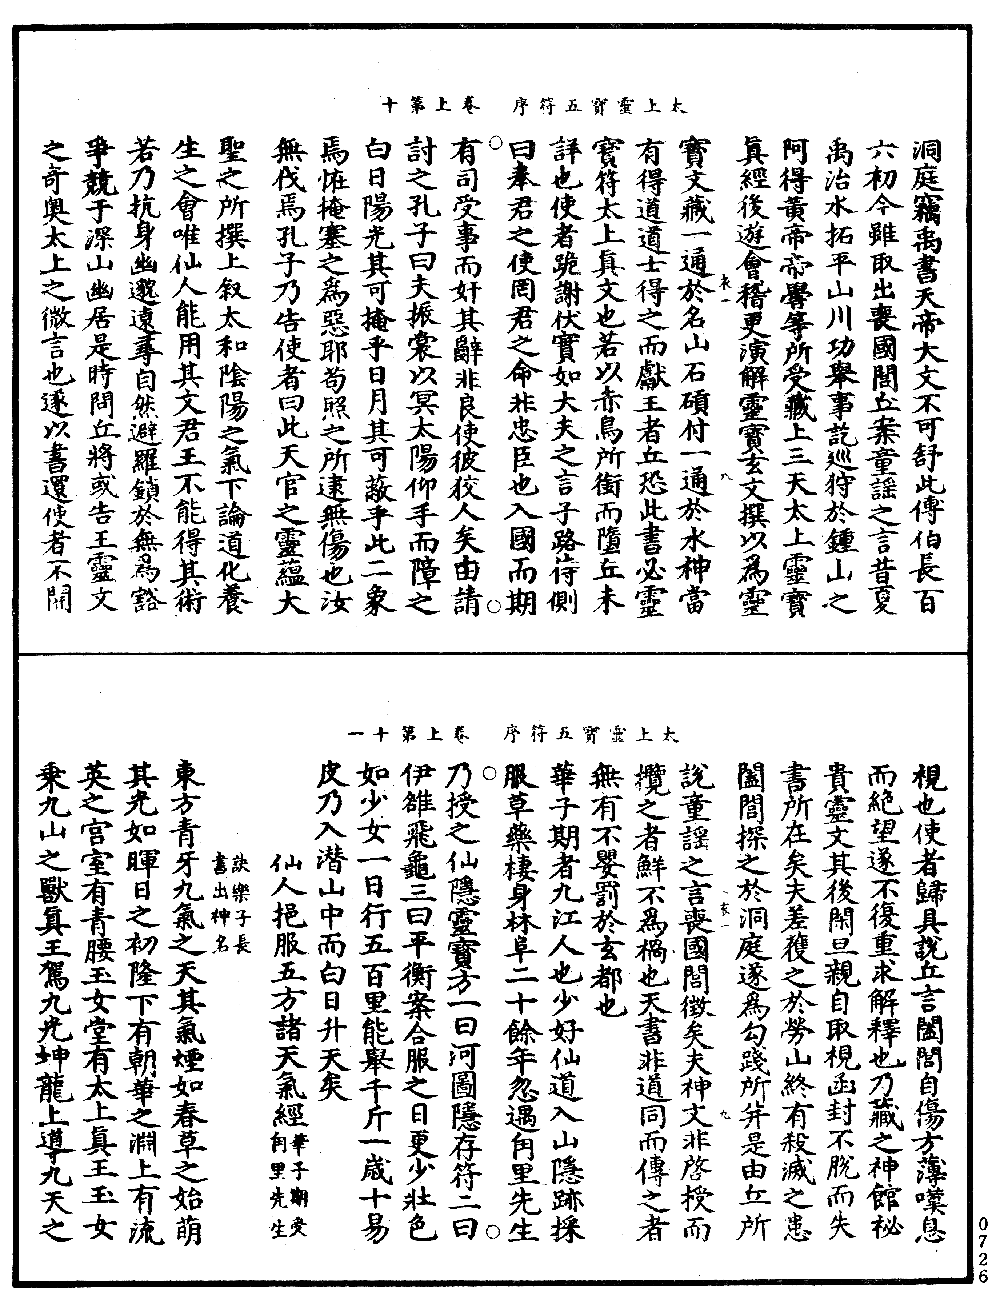 太上靈寶五符序　卷上第十
洞庭竊禹書天帝大文不可舒此傳伯長百
六初今雖取出喪國閭丘案童謠之言昔夏
禹治水拓平山川功舉事訖巡狩於鍾山之
阿得黃帝帝嚳等所受藏上三天太上靈寶
真經後遊會稽更演解靈寶玄文撰以為靈
衣一　九
寶文藏一通於名山石碩付一通於水神當
有得道道士得之而獻王者丘恐此書必靈
寶符太上真文也若以赤烏所銜而墮丘未
詳也使者跪謝伏實如大夫之言子路侍側
曰奉君之使罔君之命非忠臣也入國而期
有司受事而奸其辭非良使彼狡人矣由請
討之孔子曰夫振裳以冥太陽仰手而障之
白日陽光其可掩乎日月其可蔽乎此二象
焉恠掩塞之為惡耶苟照之所逮無傷也汝
無伐焉孔子乃告使者曰此天官之靈蘊大
聖之所撰上叙太和陰陽之氣下論道化養
生之會唯仙人能用其文君王不能得其術
若乃抗身幽邈遠尋自然避羅鎖於無為豁
爭競于深山幽居是時問丘將或告王靈文
之奇奧太上之微言也遂以書還使者不開
太上靈寶五符序　卷上第十一
視也使者歸具說丘言闔閭自傷方薄嘆息
而絕望遂不復重求解釋也乃藏之神館祕
貴靈文其後閑旦親自取視函封不脫而失
書所在矣夫差獲之於勞山終有殺滅之患
闔閭探之於洞庭遂為勾踐所并是由丘所
衣一　九
說童謠之言喪國閭徵矣夫神文非啓授而
攬之者鮮不為禍也天書非道同而傳之者
無有不嬰罰於玄都也
華子期者九江人也少好仙道入山隱跡採
服草藥棲身林阜二十餘年忽遇角里先生
乃授之仙隱靈寶方一曰河圖隱存符二曰
伊雒飛龜三曰平衡案合服之日更少壯色
如少女一日行五百里能舉千斤一歲十易
皮乃入潛山中而白日升天矣
仙人挹服五方諸天氣經華子期受角里先生
訣樂子長書出神名
東方青牙九氣之天其氣煙如春草之始萌
其光如暉日之初隆下有朝華之淵上有流
英之宮室有青腰玉女堂有太上真王玉女
乘九山之獸真王駕九光坤龍上導九天之
0726